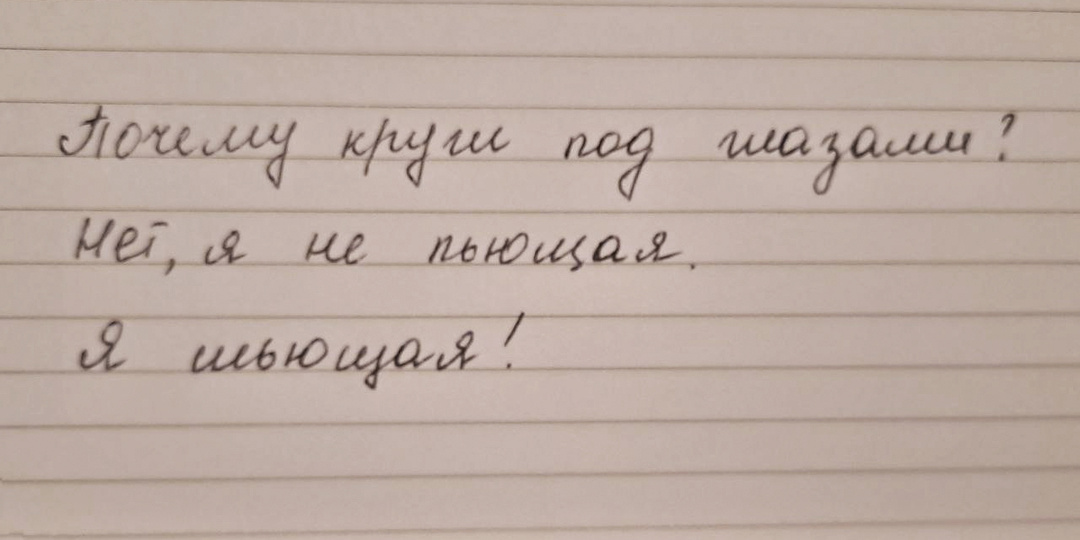 Почему круги под глазами?
Нет, я не пьющая.
Я шьющая!